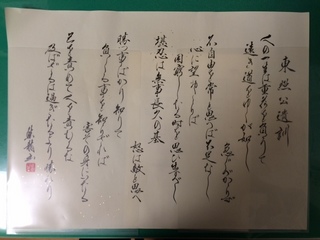 東照公遺訓
人の一生は重荷を負うて
遠き道を行くが如し
急ぐべからず
不自由を常と思へば不足なし
心に望おこらば
困窮したる時を思ひ出すべし
堪忍は無事長久の基
怒は敵と思へ
勝つ事ばかり知りて
負くる事を知らざれば
害其の身にいたる
己を責めて人を責むるな
及ばざるは過ぎたるより勝れり